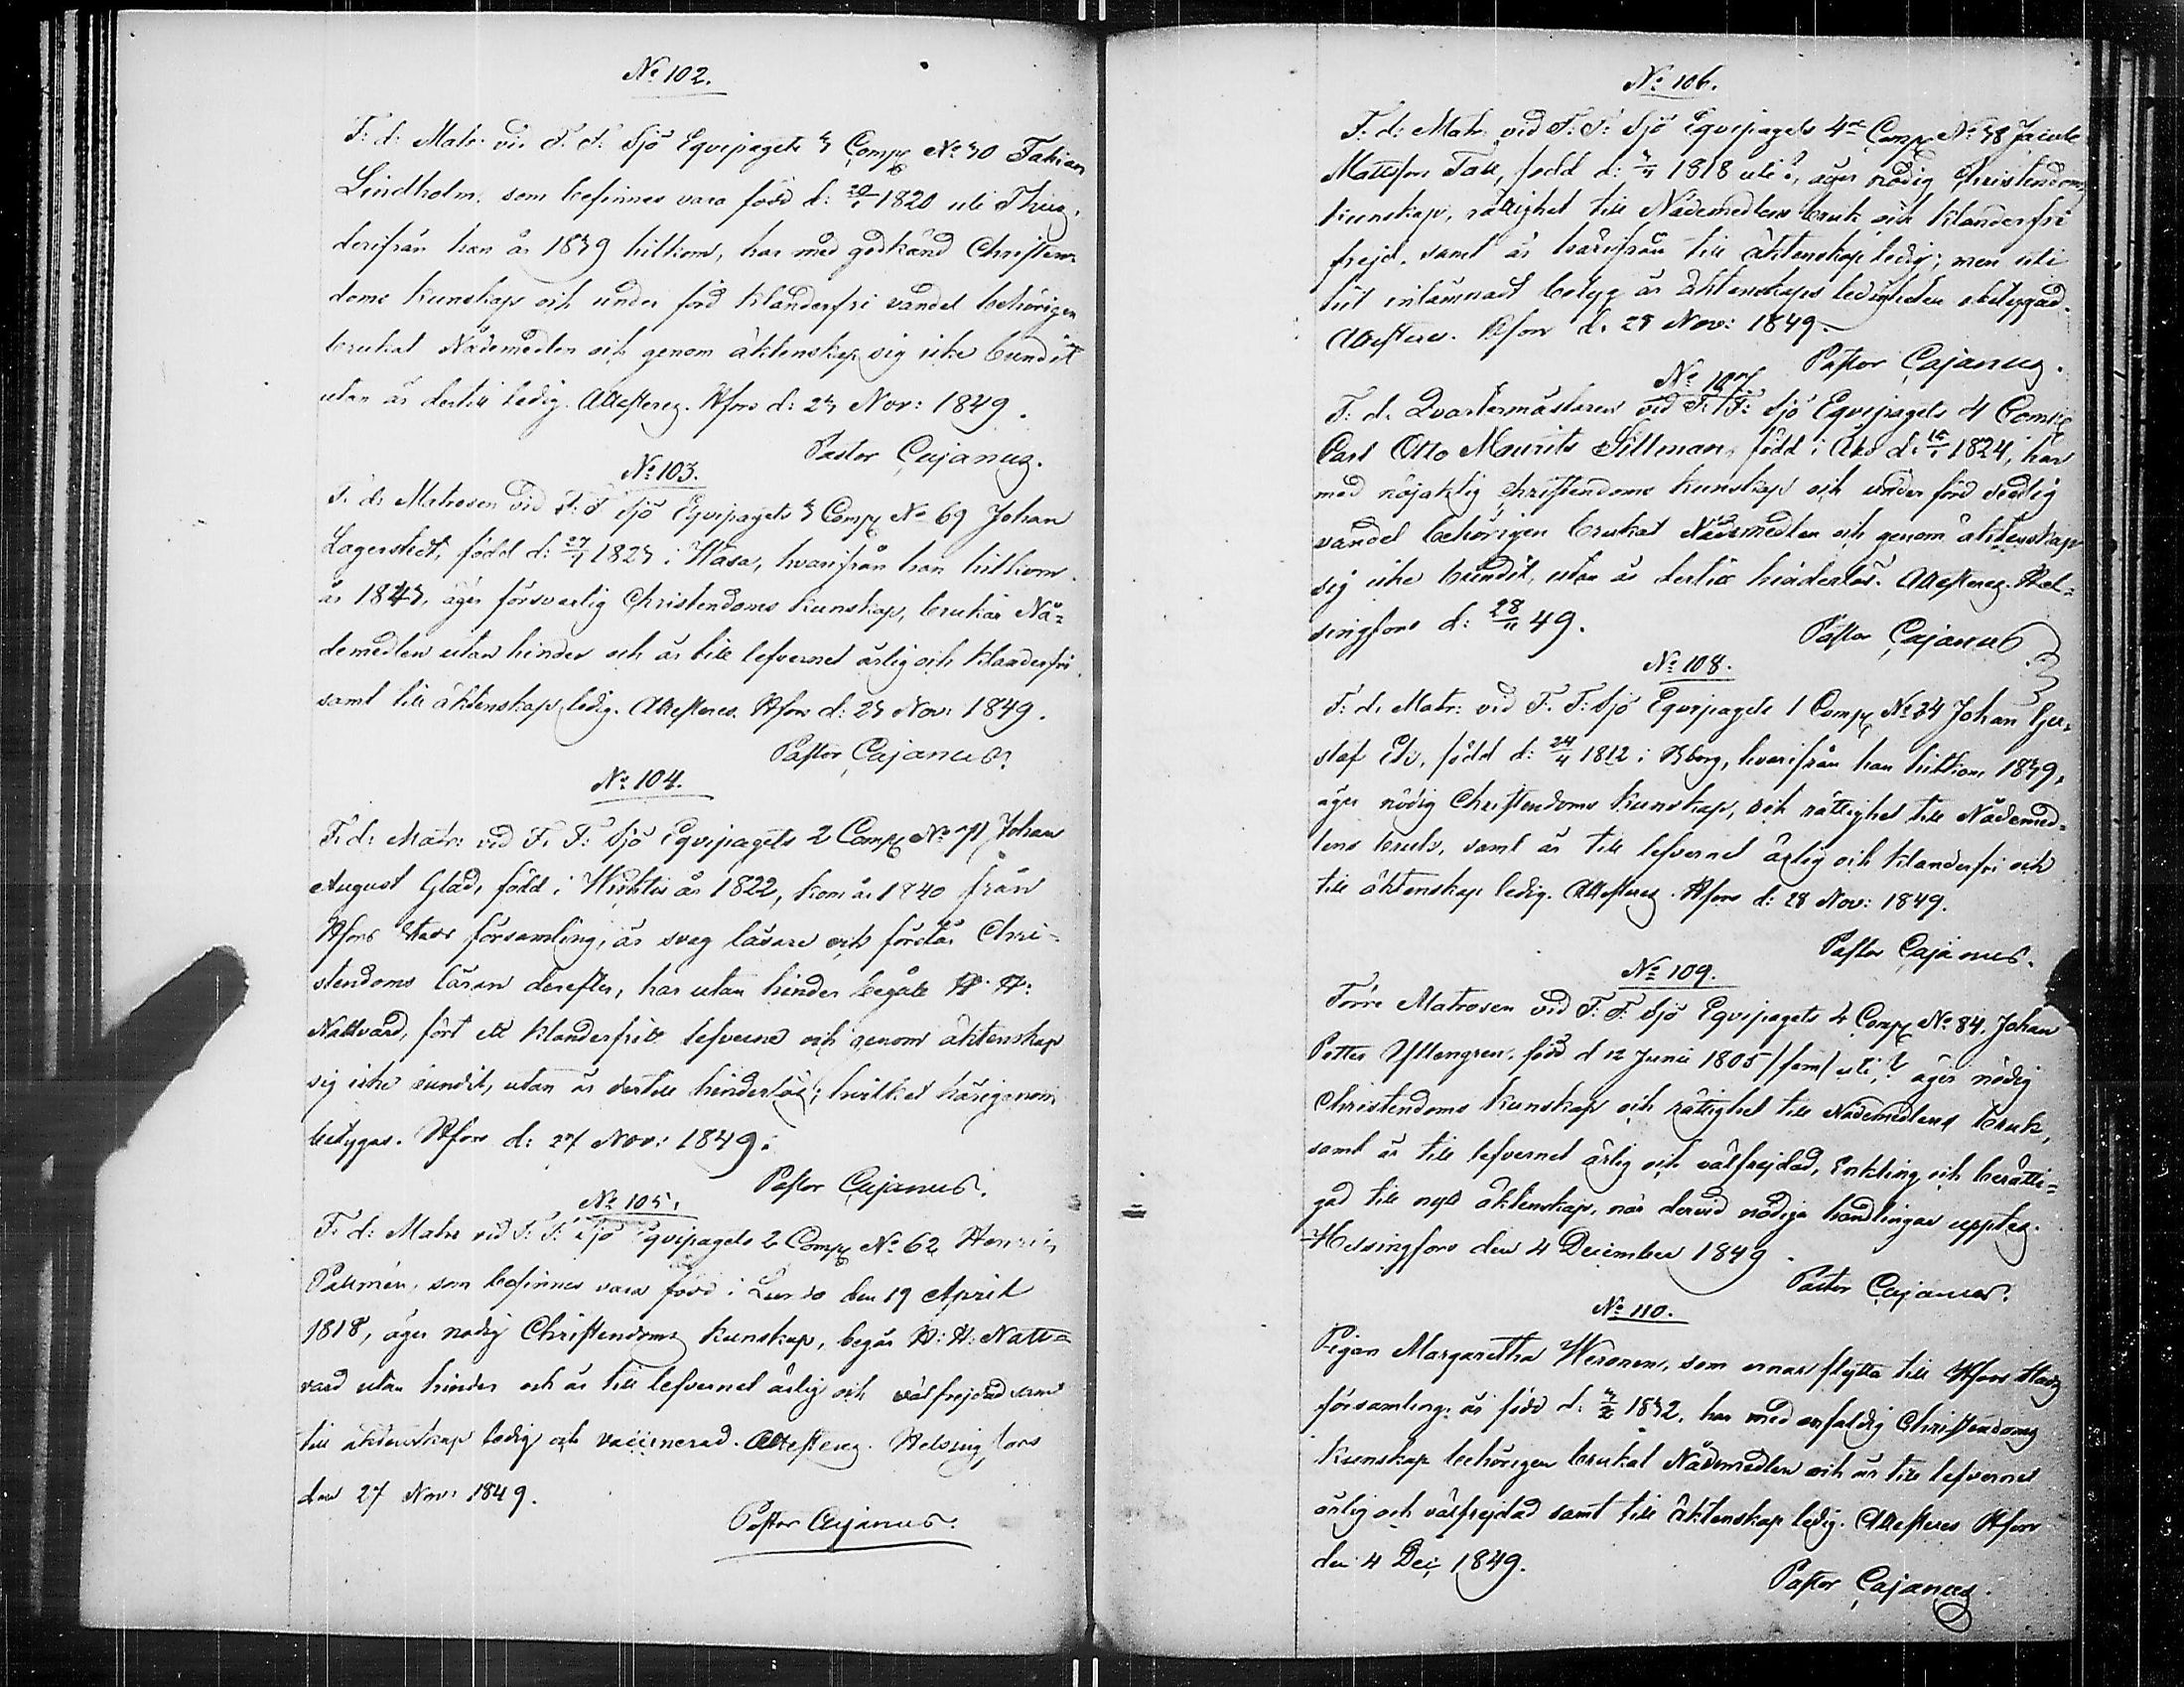 No 102.
F: d: Matr: vid F. F: Sjö Eqvipagets 3 Comp No 30 Fabian
Lindholm, som befinnes vara född d: 20/1 1820 uti Thusby,
derifrån han år 1839 hitkom, har med godkänd Christen-
doms kunskap och under förd klanderfri vandel behörigen
brukat Nådemedlen och genom äktenskap sig icke bundit
utan är dertill ledig. Attesteras. Hfors d: 23 Nov: 1849.
Pastor Cajanus.
No 103.
F. d: Matrosen vid F: F Sjö Eqvipagets 3 Comp No 69 Johan
Lagerstedt, född d: 27/7 1823 i Wasa, hvarifrån han hitkom
år 1843, äger försvarlig Christendoms kunskap, brukar Nå-
demedlen utan hinder och är till lefvernet ärlig och klanderfri
samt till äktenskap ledig. Attesteras. Hfors d: 23 Nov: 1849.
Pastor Cajanus.
No 104.
F. d: Matr: vid F. F: Sjö Eqvipagets 2 Comp No 71 Johan
August Glad, född i Wichtis år 1822, kom år 1840 från
Hfors Stads församling, är svag läsare och förstår Chri-
stendoms läran derefter, har utan hinder begått H. H:
Nattvard, fört ett klanderfritt lefverne och genom äktenskap
sig icke bundit, utan är dertill hinderlös; hvilket härigenom
betygas. Hfors d: 27 Nov: 1849.
Pastor Cajanus.
No 105.
F. d: Matrs vid F: F: Sjö Eqvipagets 2 Comp No 62 Henric
Palmén, som befinnes vara född i Lundo den 19 April
1818, äger nödig Christendoms kunskap, begår H: H: Natt-
vard utan hinder och är till lefvernet ärlig och välfrejdad samt
till äktenskap ledig och vaccinerad. Attesteras. Helsingfors
den 27 Nov: 1849.
Pastor Cajanus.
No 106.
F. d: Matr: vid F: F: Sjö Eqvipagets 4de Comp No 38 Jacob
Mattsson Tall, född d: 1818 uti?, äger nödig Christendoms
kunskap, rättighet till Nådemedlens bruk och klanderfri
frejd, samt är härifrån till äktenskap ledig; men uti
hit inlämnadt betyg är äktenskaps ledigheten obetygad.
Attesteras. Hfors d. 28 Nov: 1849.
Pastor Cajanus.
No 107.
F: d. Qvartermästaren vid F. F: Sjö Eqvipagets 4 Comp
Carl Otto Maurits Sillman, född i Åbo d: 15/1 1824, har
med nöjaktig Christendoms kunskap och under förd sedlig
vandel behörigen brukat Nådemedlen och genom äktenskap
sig icke bundit, utan är dertill hinderlös. Attesteras. Hel-
singfors d: 28/11 49.
Pastor Cajanus
No 108.
F: d. Matr: vid F. F: Sjö Eqvipagets 1 Comp No 34 Johan Gu-
staf Ek, född d: 24/4 1812 i Wborg, hvarifrån han hitkom 1839,
äger nödig Christendoms kunskap, och rättighet till Nådemed-
lens bruk, samt är till lefvernet ärlig och klanderfri och
till äktenskap ledig. Attesteras. Hfors d: 28 Nov: 1849.
Pastor Cajanus.
No 109.
Förre Matrosen vid F: F. Sjö Eqvipagets 4 Comp No 84. Johan
Petter Yllengren, född d 12 Junii 1805 /fem/ uti,? äger nödig
Christendoms kunskap och rättighet till Nådemedlens bruk,
samt är till lefvernet ärlig och välfrejdad, Enkling och berätti-
gad till nytt äktenskap, när dervid nödiga handlingar uppteз.
Helsingfors den 4 December 1849.
Pastor Cajanus.
No 110.
Pigan Margaretha Weronen, som ernar flytta till Hfors Stads
församling är född d: 3/2 1832, har med enfaldig Christendoms
kunskap behörigen brukat Nådemedlen och är till lefvernet
ärlig och välfrejdad samt till äktenskap ledig. Attesteras Hfors
den 4 Dec 1849.
Pastor Cajanus.